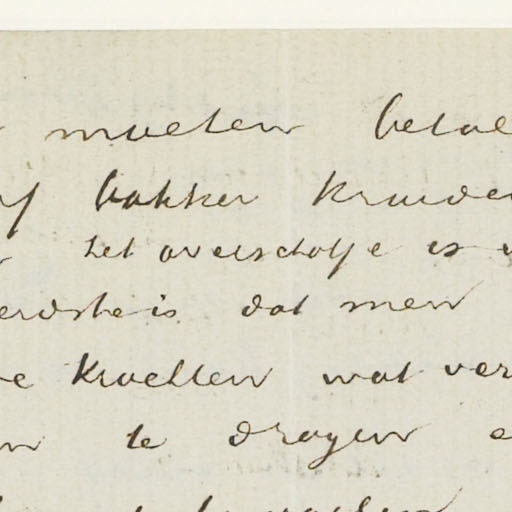 moeten betae
bakker kruide
het overschotje is
erdste is dat men
e kwellen wat ver
n te dragen e